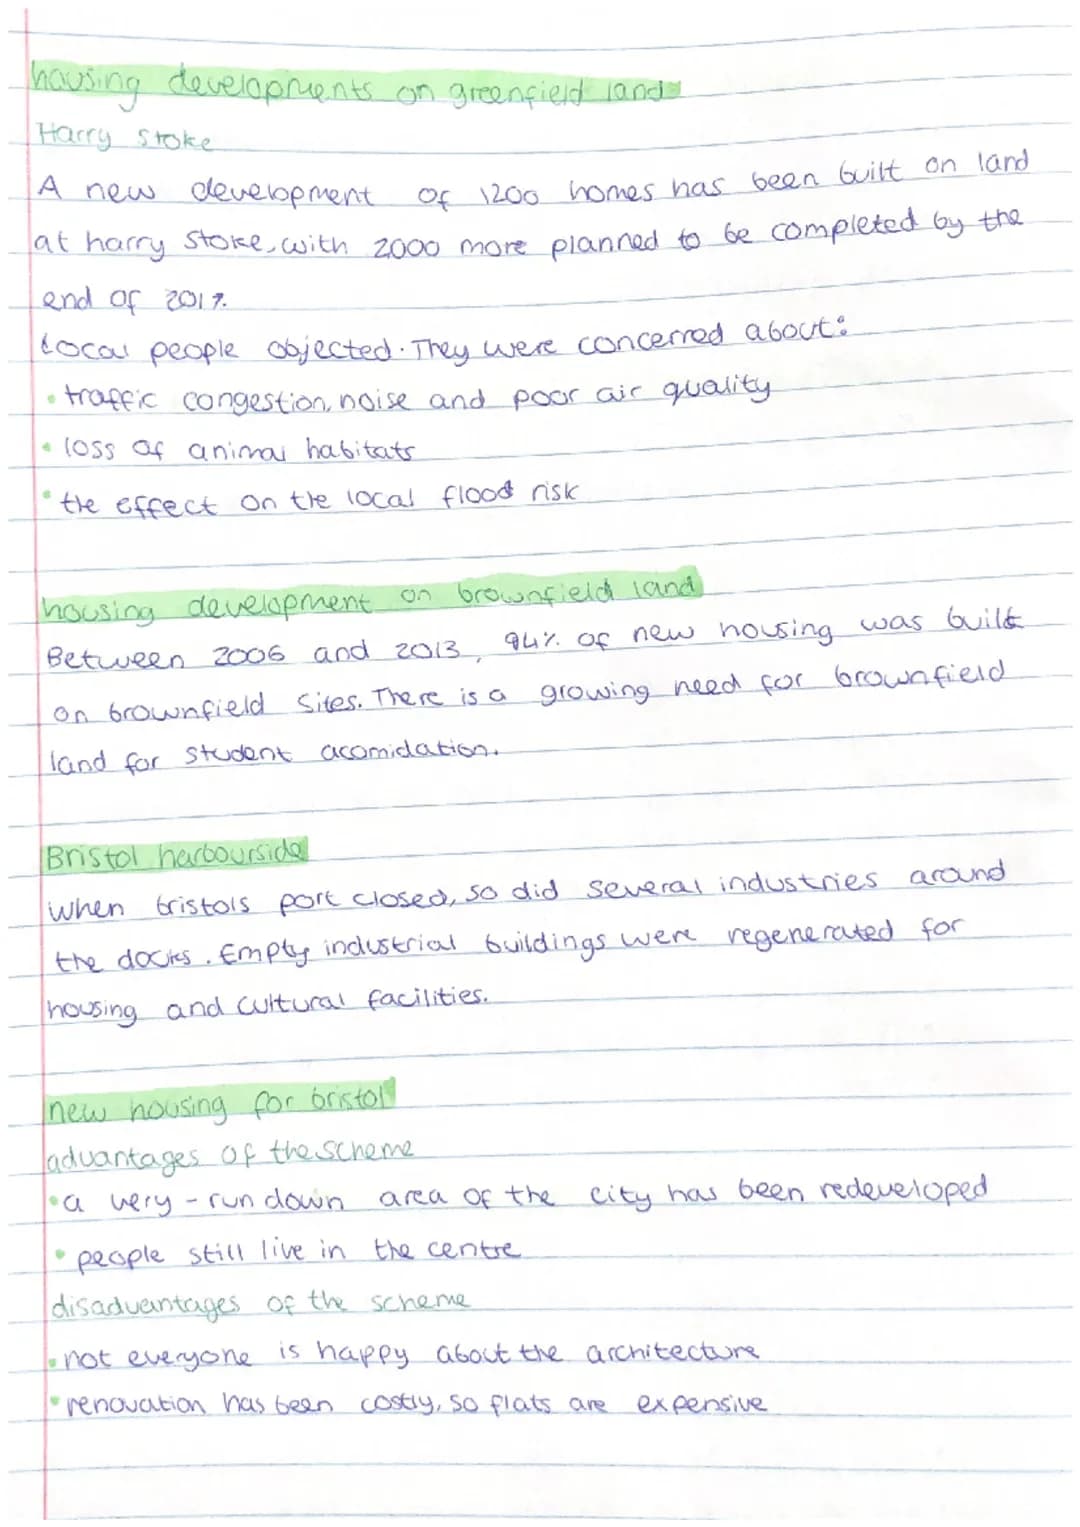 housing developments on greenfield land
Harry Stoke
A new development of 1200 homes has been built on land
at harry stoke, with 2000 more planned to be completed by the
end of 2017.
Local people objected. They were concerred about:
• traffic congestion, noise and poor air quality
• loss of animal habitats
• the effect on the local flood risk
housing development on brownfield land
Between 2006 and 2013, 94% of new housing was built
on brownfield sites. There is a growing need for brownfield
land for student acomidation.
Bristol harbourside
when bristols port closed, so did several industries around
the docks. Empty industrial buildings were regenerated for
housing and cultural facilities.
new housing for bristol
advantages of the scheme
• a very - run down area of the city has been redeveloped
• people still live in the centre
disadvantages of the scheme
• not everyone is happy about the architecture
• renovation has been costly, so flats are expensive